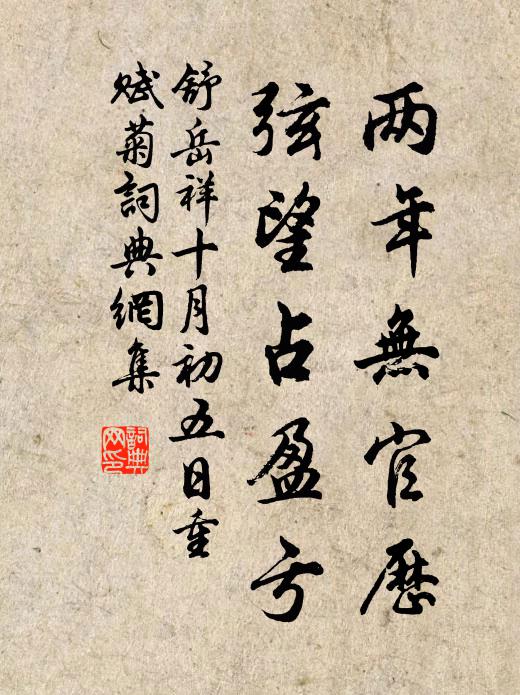 两年無官歷
弦望占盈亏
舒岳祥十月初五日重
赋菊詞典網集
詞典
网印